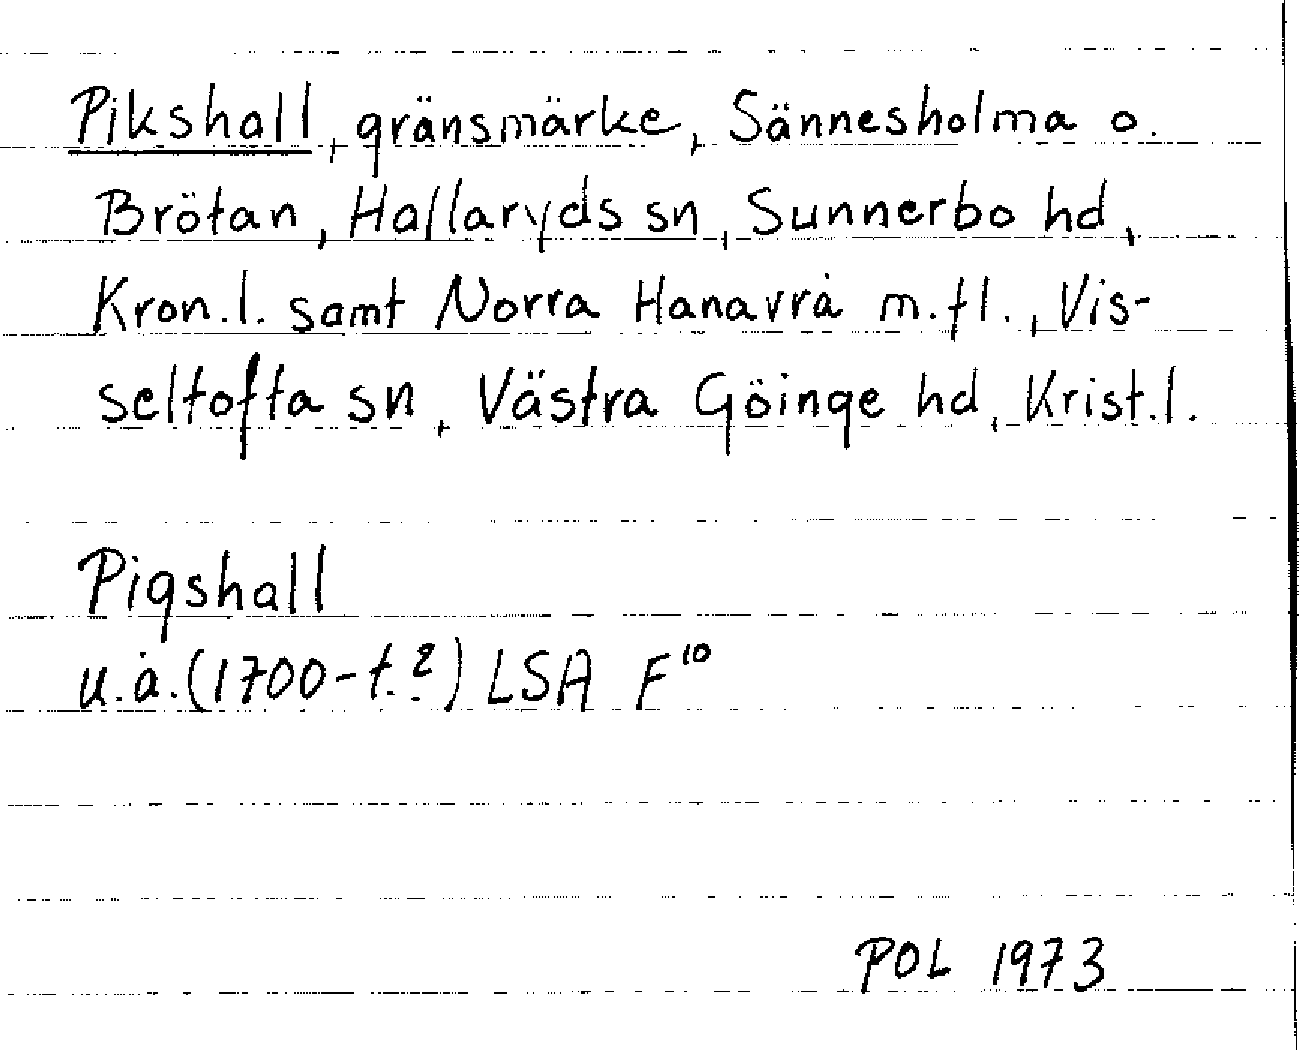 Pikshall, gränsmärke, Sännesholma o.
Brötan, Hallaryds sn, Sunnerbo hd,
Kron.l. samt Norra Hanavrå m.fl., Vis-
seltofta sn, Västra Göinge hd, Krist.l.
Pigshall
u.å.(1700-t.?) LSA F¹⁰
POL 1973